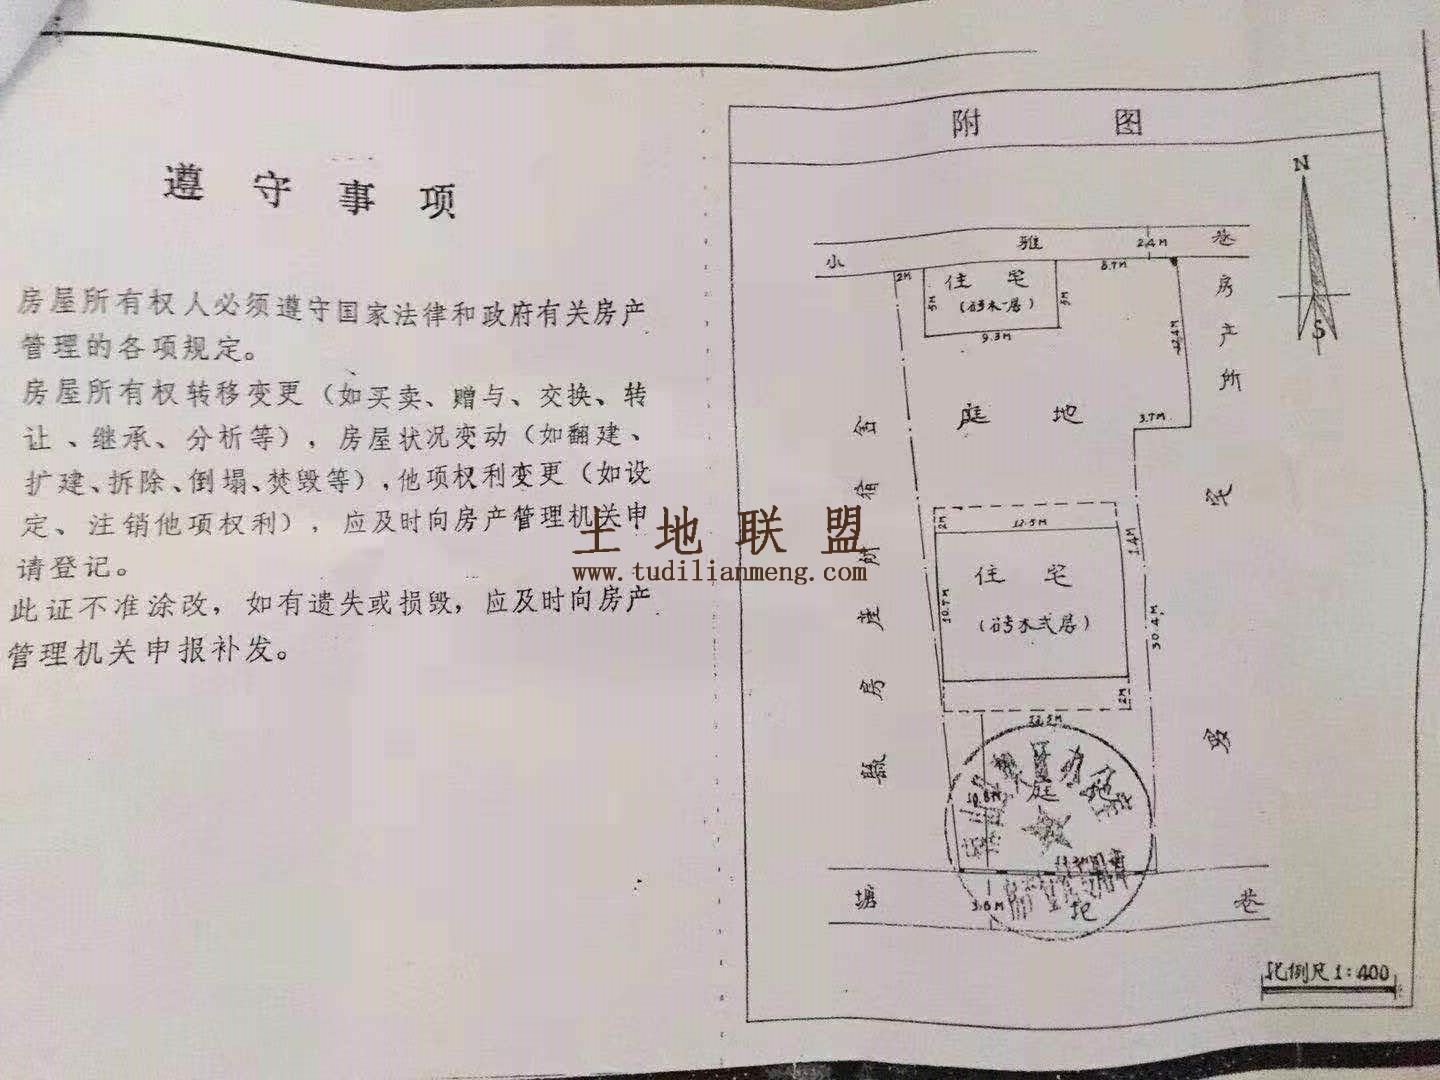 遵守事项
房屋所有权人必须遵守国家法律和政府有关房产
管理的各项规定。
房屋所有权转移变更（如买卖、赠与、交换、转
让、继承、分析等），房屋状况变动（如翻建、
扩建、拆除、倒塌、焚毁等），他项权利变更（如设
定、注销他项权利），应及时向房产管理机关申
请登记。
此证不准涂改，如有遗失或损毁，应及时向房产
管理机关申报补发。
土地联盟
www.tudilianmeng.com
附图
N
S
小雅巷
2.4M
2M
8.7M
住宅
(砖木一层)
5M
5M
9.3M
12.4M
房产所
庭地
3.7M
2M
12.5M
1.4M
住宅
(砖木弍层)
10.7M
30.4M
2M
10.8M
庭
塘
巷
3.6M
比例尺1:400